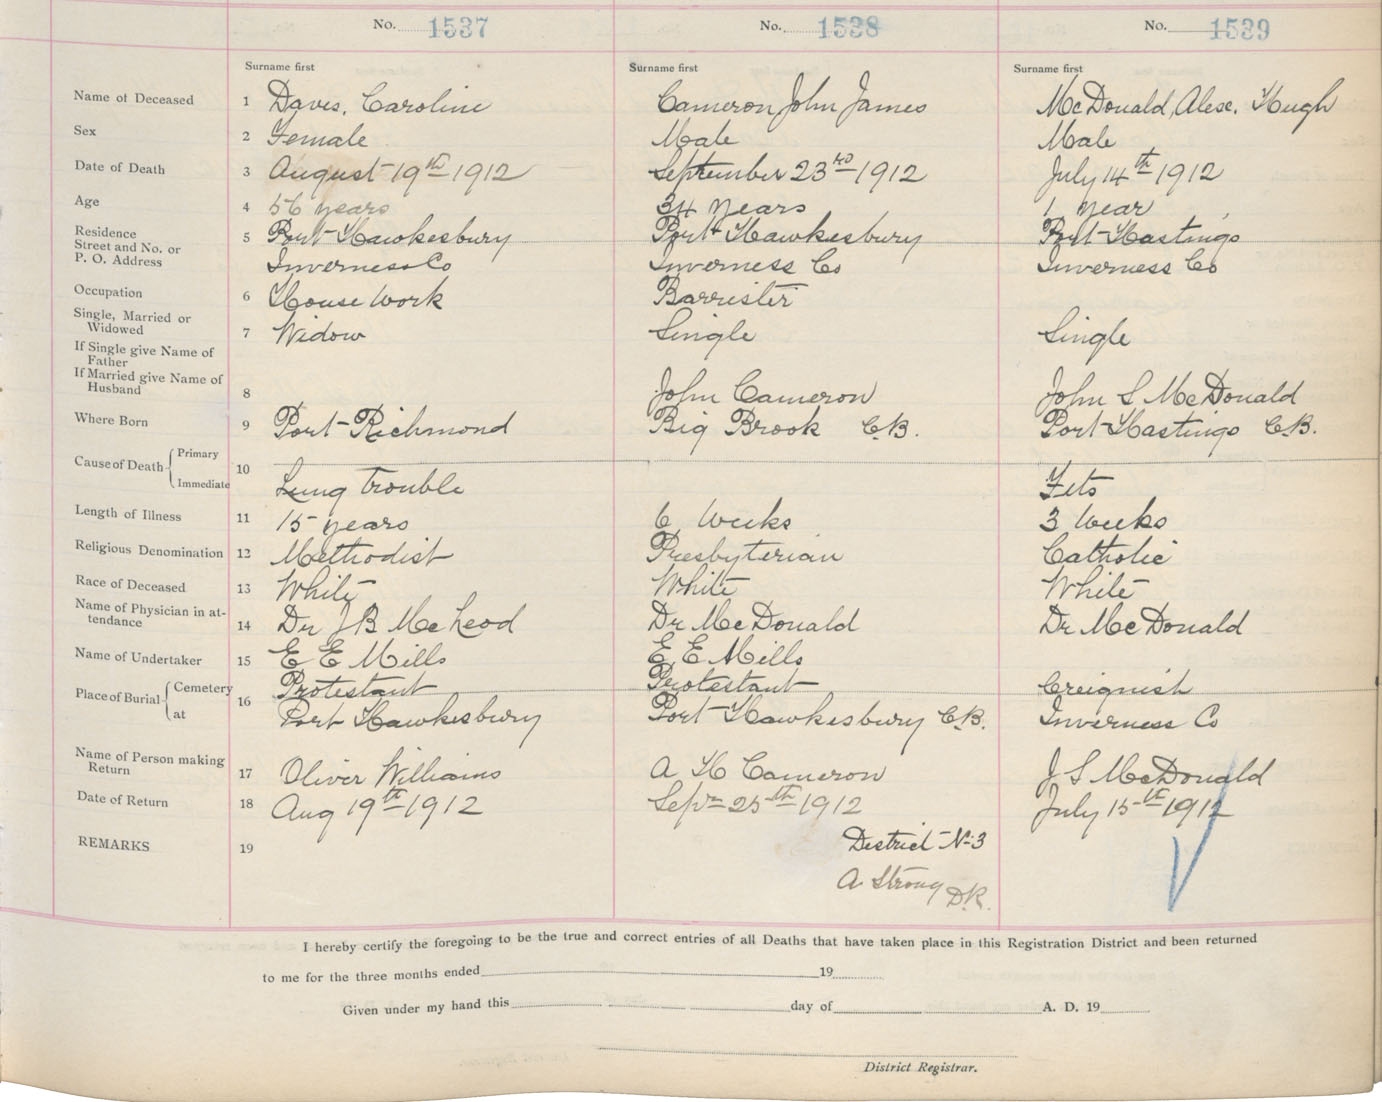 No. 1537 No. 1538 No. 1539
Surname first Surname first Surname first
Name of Deceased 1 Davis, Caroline Cameron John James McDonald, Alex. Hugh
Sex 2 Female Male Male
Date of Death 3 August 19th 1912 September 23rd 1912 July 14th 1912
Age 4 56 years 34 years 1 year
Residence
Street and No. or 5 Port Hawkesbury Port Hawkesbury Port Hastings
P. O. Address Inverness Co Inverness Co Inverness Co
Occupation 6 House Work Barrister
Single, Married or
Widowed 7 Widow Single Single
If Single give Name of
Father
If Married give Name of
Husband 8 John Cameron John S McDonald
Where Born 9 Port Richmond Big Brook C.B. Port Hastings C.B.
Cause of Death Primary
10
Immediate Lung trouble Fits
Length of Illness 11 15 years 6 Weeks 3 Weeks
Religious Denomination 12 Methodist Presbyterian Catholic
Race of Deceased 13 White White White
Name of Physician in at-
tendance 14 Dr J B McLeod Dr McDonald Dr McDonald
Name of Undertaker 15 E E Mills E E Mills
Place of Burial Cemetery 16 Protestant Protestant Creignish
at Port Hawkesbury Port Hawkesbury C.B. Inverness Co
Name of Person making
Return 17 Oliver Williams A H Cameron J S McDonald
Date of Return 18 Aug 19th 1912 Sepr 25th 1912 July 15th 1912
REMARKS 19 District No 3
A Strong D.R.
I hereby certify the foregoing to be the true and correct entries of all Deaths that have taken place in this Registration District and been returned
to me for the three months ended 19
Given under my hand this day of A. D. 19
District Registrar.